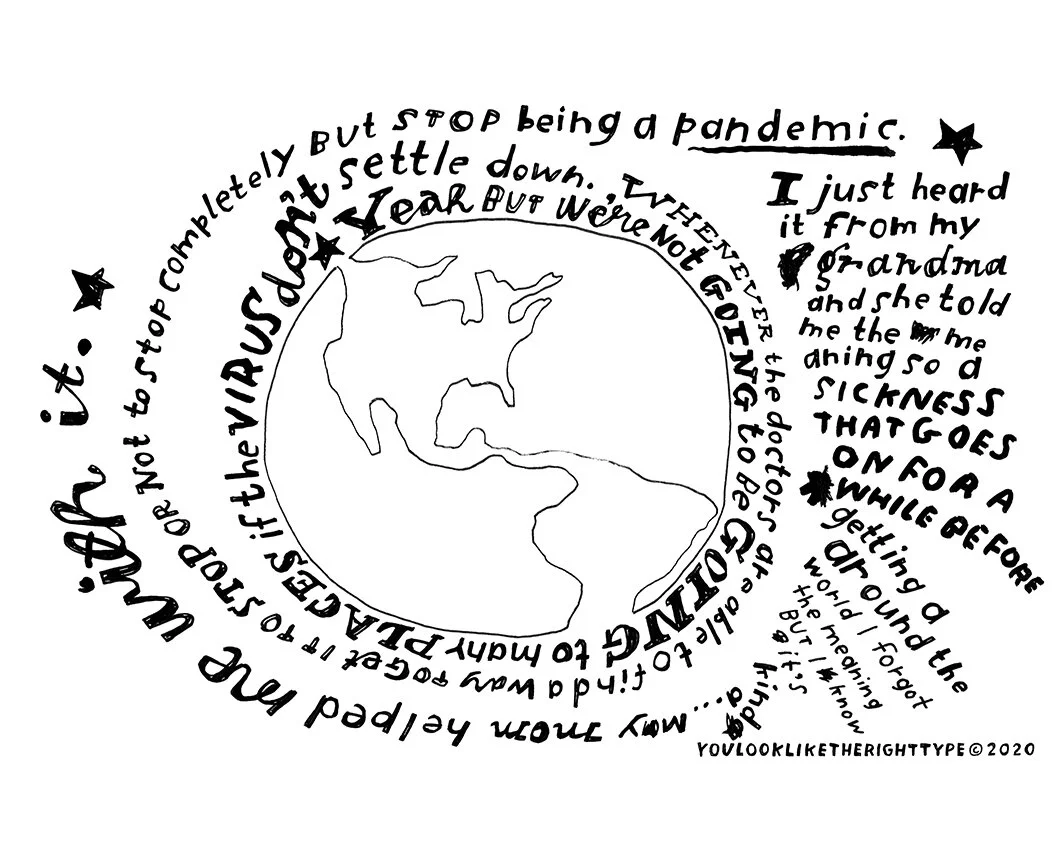 Yeah BUT We're Not GOING to be GOING to many PLACES if the VIRUS don't settle down. WHENEVER the doctors are able to find a way to Get it TO STOP OR Not to stop completely BUT STOP being a pandemic.
I just heard
it from my
grandma
and she told
me the me
aning so a
SICKNESS
THAT GOES
ON FOR A
WHILE BEFORE
getting a
around the
world I forgot
the meaning
BUT I know
it's
kind
a
... my mom helped me with it.
YOULOOKLIKETHERIGHTTYPE©2020